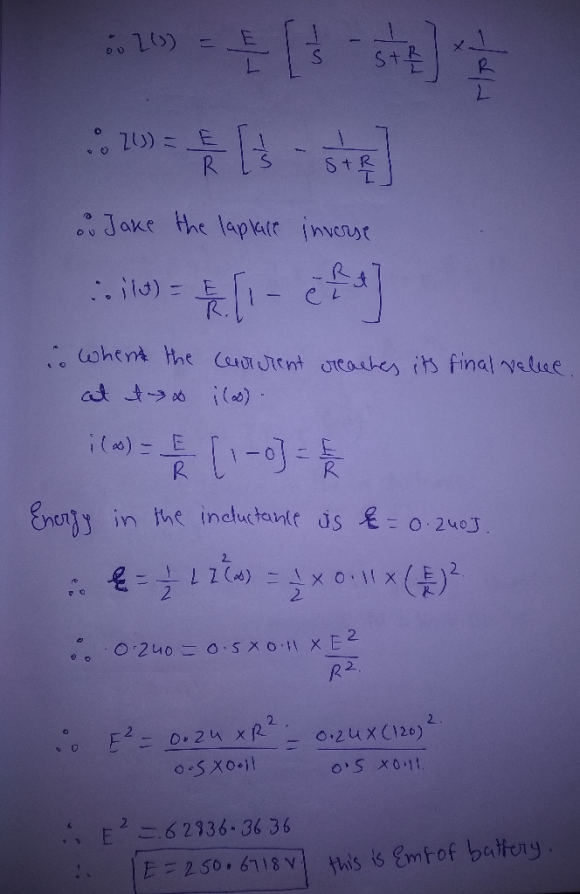 ∴ I(s) = E/L [ 1/s - 1/(s+R/L) ] × 1/(R/L)
∴ I(s) = E/R [ 1/s - 1/(s+R/L) ]
∴ Take the laplace inverse
∴ i(t) = E/R. [ 1 - e^(-R/L t) ]
∴ when the current reaches its final value.
at t→∞ i(∞).
i(∞) = E/R [1-0] = E/R
Energy in the inductance is ξ = 0.240J.
∴ ξ = 1/2 L I²(∞) = 1/2 × 0.11 × (E/R)².
∴ 0.240 = 0.5 × 0.11 × E²/R².
∴ E² = 0.24 × R² / 0.5 × 0.11 = 0.24 × (120)². / 0.5 × 0.11.
∴ E² = 62836.3636
∴ E = 250.6718 V this is Emf of battery.